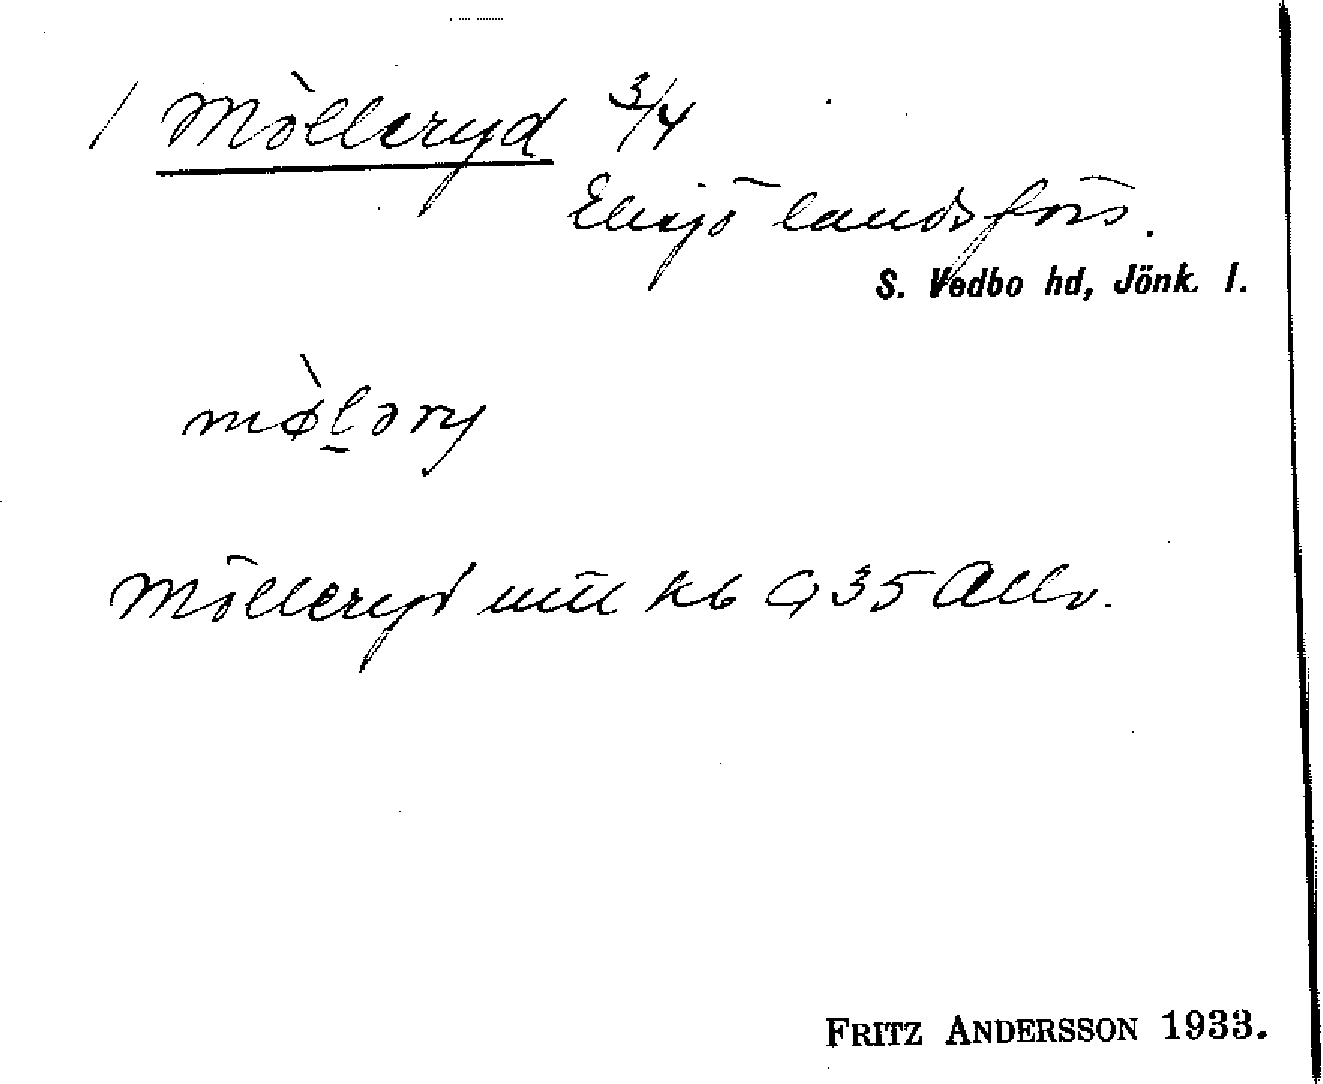 1 Mölleryd 3/4
Eksjö landsförs.
S. Vedbo hd, Jönk. l.
mø̀ləry
Mölleryd mtl kb G 35 Allv.
FRITZ ANDERSSON 1933.